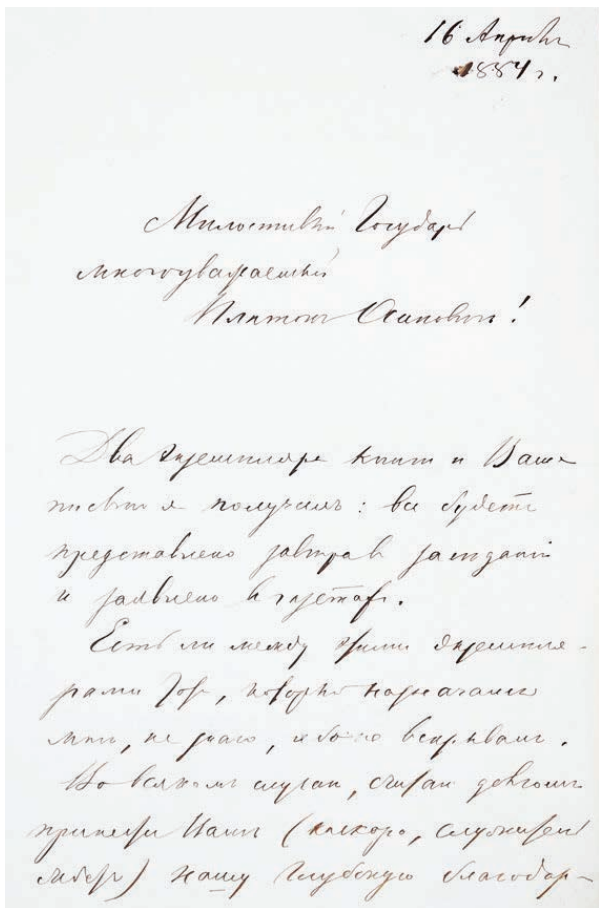 16 Апрѣль
1884 г.
Милостивый Государь
многоуважаемый
Платонъ Осиповичъ!
Два экземпляра книги и Ваше
письмо я получилъ: все будетъ
представлено завтра въ засѣданіи
и заявлено въ газетахъ.
Есть ли между этими экземпля-
рами тотъ, который назначали
мнѣ, не знаю, ибо не вскрывалъ.
Во всякомъ случаѣ, считаю долгомъ
принести Вамъ
нашу глубокую благодар-